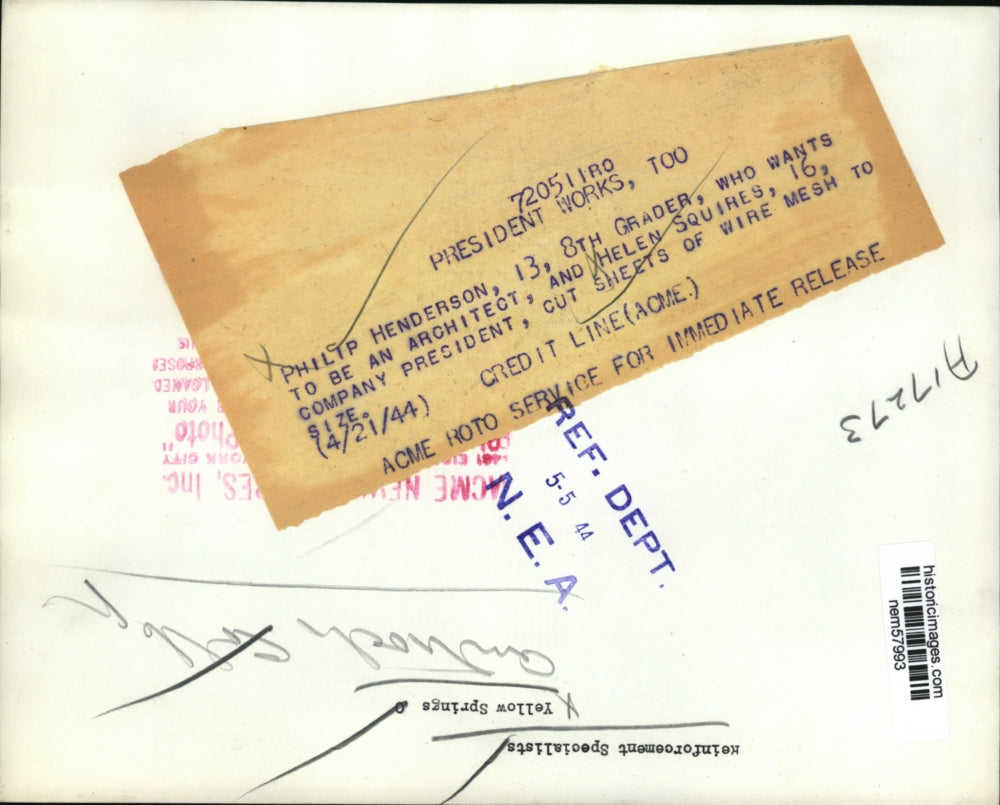 720511RO
PRESIDENT WORKS, TOO
PHILIP HENDERSON, 13, 8TH GRADER, WHO WANTS
TO BE AN ARCHITECT, AND HELEN SQUIRES, 16,
COMPANY PRESIDENT, CUT SHEETS OF WIRE MESH TO
SIZE.
CREDIT LINE (ACME.)
(4/21/44)
ACME ROTO SERVICE FOR IMMEDIATE RELEASE
REF. DEPT.
5-5 44
N. E. A.
A17273
historicimages.com
nem57993
Reinforcement Specialists
Yellow Springs O
Antioch College
ACME NEW RES, Inc.
YORK CITY
Photo
YOUR
LOANED